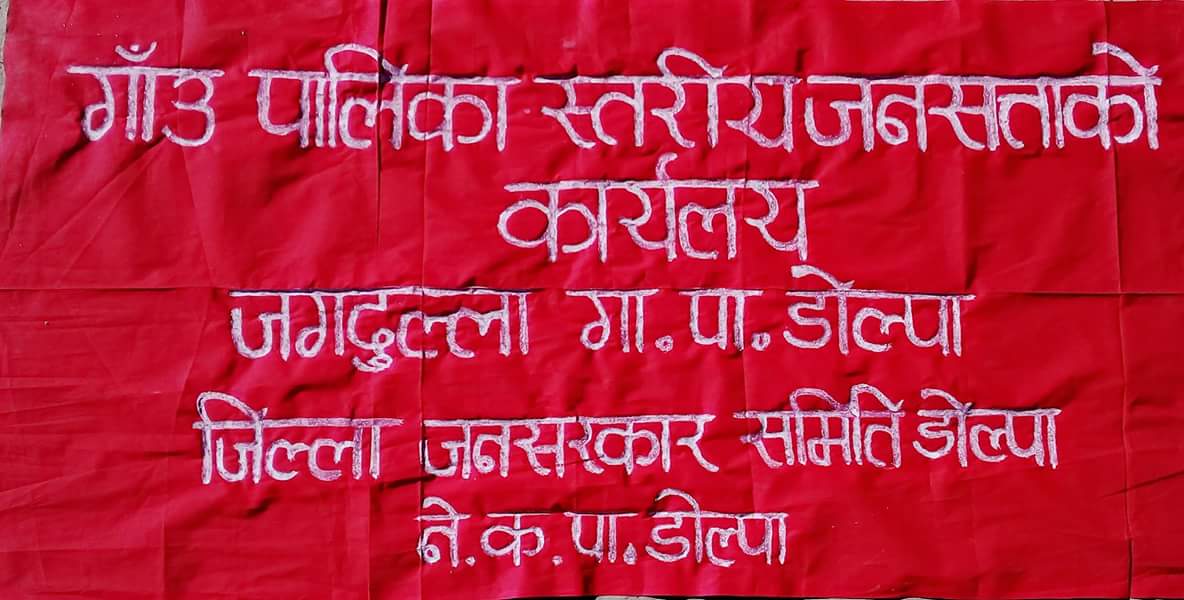 गाँउ पालिका स्तरीय जनसत्ताको
कार्यलय
जगदुल्ला गा.पा. डोल्पा
जिल्ला जनसरकार समिति डोल्पा
ने.क.पा. डोल्पा